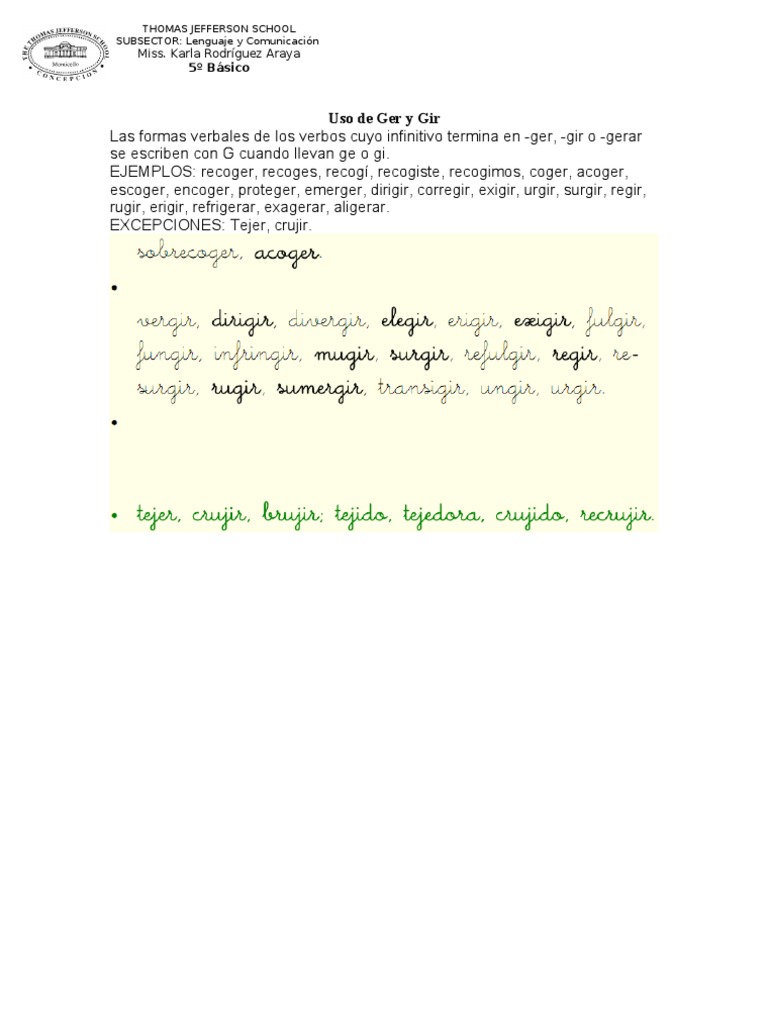 THE THOMAS JEFFERSON SCHOOL
Monticello
• CONCEPCION •
THOMAS JEFFERSON SCHOOL
SUBSECTOR: Lenguaje y Comunicación
Miss. Karla Rodríguez Araya
5º Básico
Uso de Ger y Gir
Las formas verbales de los verbos cuyo infinitivo termina en -ger, -gir o -gerar
se escriben con G cuando llevan ge o gi.
EJEMPLOS: recoger, recoges, recogí, recogiste, recogimos, coger, acoger,
escoger, encoger, proteger, emerger, dirigir, corregir, exigir, urgir, surgir, regir,
rugir, erigir, refrigerar, exagerar, aligerar.
EXCEPCIONES: Tejer, crujir.
sobrecoger, acoger.
•
vergir, dirigir, divergir, elegir, erigir, exigir, fulgir,
fungir, infringir, mugir, surgir, refulgir, regir, re-
surgir, rugir, sumergir, transigir, ungir, urgir.
•
• tejer, crujir, brujir; tejido, tejedora, crujido, recrujir.